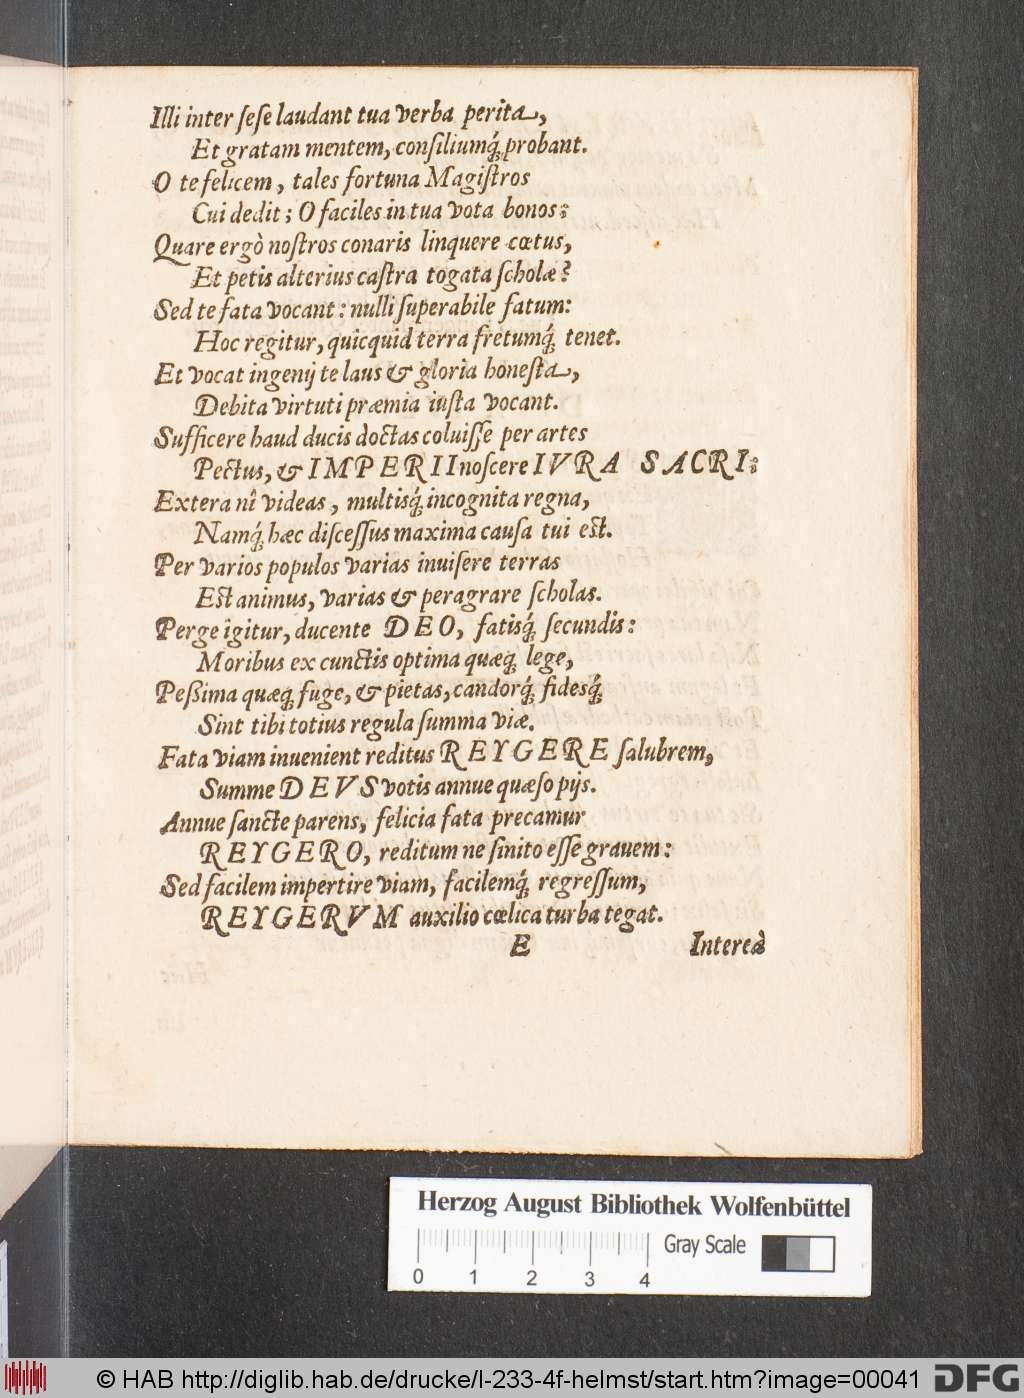 Illi inter ſeſe laudant tua verba perita,
Et gratam mentem, conſiliumq́; probant.
O te felicem, tales fortuna Magiſtros
Cui dedit; O faciles in tua vota bonos:
Quare ergò noſtros conaris linquere cœtus,
Et petis alterius caſtra togata ſcholæ?
Sed te fata vocant: nulli ſuperabile fatum:
Hoc regitur, quicquid terra fretumq́; tenet.
Et vocat ingenij te laus & gloria honeſta,
Debita virtuti præmia iuſta vocant.
Sufficere haud ducis doctas coluiſſe per artes
Pectus, & IMPERII noſcere IVRA SACRI:
Extera nî videas, multisq́; incognita regna,
Namq́; hæc diſceſſus maxima cauſa tui eſt.
Per varios populos varias inuiſere terras
Eſt animus, varias & peragrare ſcholas.
Perge igitur, ducente DEO, fatisq́; ſecundis:
Moribus ex cunctis optima quæq; lege,
Peßima quæq; fuge, & pietas, candorq́; fidesq́;
Sint tibi totius regula ſumma viæ.
Fata viam inuenient reditus REYGERE ſalubrem,
Summe DEVS votis annue quæſo pijs.
Annue ſancte parens, felicia fata precamur
REYGERO, reditum ne ſinito eſſe grauem:
Sed facilem impertire viam, facilemq́; regreſſum,
REYGERVM auxilio cœlica turba tegat.
E Intereà
Herzog August Bibliothek Wolfenbüttel
Gray Scale
0 1 2 3 4
© HAB http://diglib.hab.de/drucke/l-233-4f-helmst/start.htm?image=00041
DFG